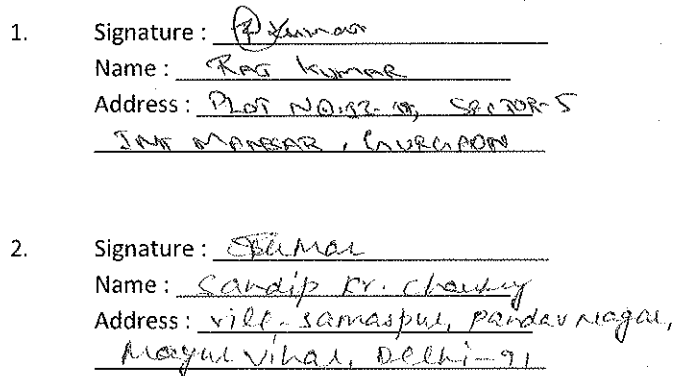 1. Signature : R Kumar
Name : Raj Kumar
Address : PLOT NO. SECTOR-5
IMT MANESAR, GURGAON
2. Signature : SKumar
Name : Sandip Kr.
Address : vill-samaspur, pandav nagar,
Mayur vihar, Delhi-91